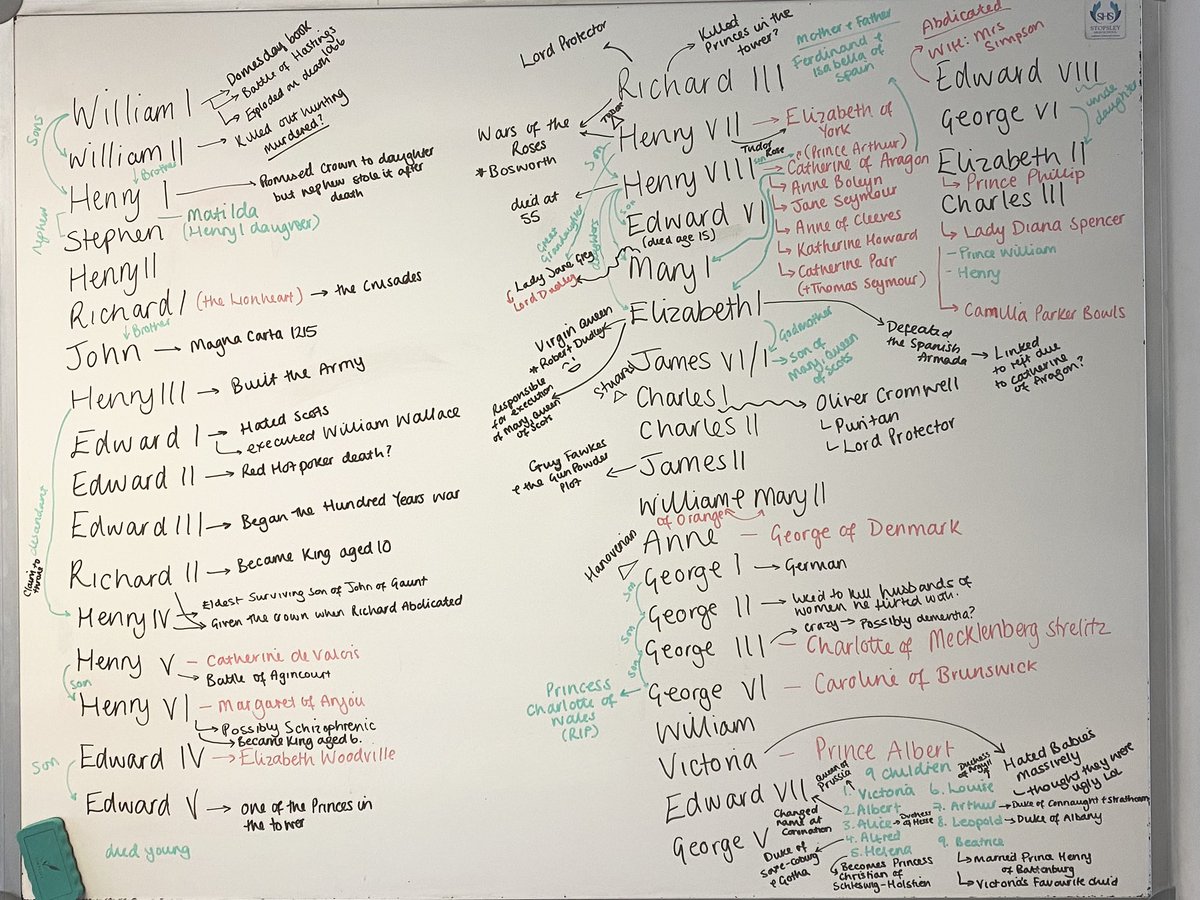 William I
Domesday book
Battle of Hastings 1066
Exploded on death
Sons
William II
Killed out hunting
murdered?
Brother
Henry I
Promised crown to daughter
but nephew stole it after
death
Stephen
Matilda
(Henry I daughter)
Henry II
Richard I (the Lionheart) → the Crusades
Brother
John → Magna Carta 1215
Henry III → Built the Army
Edward I → Hated Scots
executed William Wallace
Edward II → Red Hot poker death?
Edward III → Began the Hundred Years war
Richard II → Became King aged 10
Claim to throne
desendant
Henry IV
Eldest surviving son of John of Gaunt
Given the crown when Richard Abdicated
Henry V – Catherine de Valois
Battle of Agincourt
Son
Henry VI – Margaret of Anjou
Possibly Schizophrenic
Became King aged 6.
Edward IV → Elizabeth Woodville
Son
Edward V → one of the Princes in
the tower
died young
Lord Protector
Killed
Princes in the
tower?
Richard III
Mother & Father
Ferdinand &
Isabella of
Spain
Wars of the
Roses
* Bosworth
Tudor
Henry VII → Elizabeth of
York
Tudor Rose
Son
died at
55
Henry VIII
(Prince Arthur)
Catherine of Aragon
Anne Boleyn
Jane Seymour
Anne of Cleeves
Katherine Howard
Catherine Parr
(+Thomas Seymour)
Son
Edward VI
(died age 15)
Great
Grandaughter
daughters
Lady Jane Grey
Lord Dudley
Mary I
Elizabeth I
Virgin Queen
* Robert Dudley
Responsible
for execution
of Mary, Queen
of Scots
Defeated
the Spanish
Armada
Linked
to rift due
to Catherine
of Aragon?
Godmother
Stuart
James VI/I → Son of
Mary, Queen
of Scots
Charles I
Oliver Cromwell
Puritan
Lord Protector
Charles II
James II
Guy Fawkes
& the Gun Powder
Plot
William & Mary II
of Orange
Anne – George of Denmark
Hanoverian
George I → German
Son
George II → Used to kill husbands of
women he flirted with.
Son
George III
crazy → Possibly dementia?
Charlotte of Mecklenberg Strelitz
Son
George VI – Caroline of Brunswick
Princess
Charlotte of
Wales
(RIP)
William
Victoria
Prince Albert
Hated Babies
massively
thought they were
ugly Lol
9 Children
Queen of
Prussia
1. Victoria
2. Albert
3. Alice → Duchess of Hesse
4. Alfred
5. Helena
Duchess
of Argyll
6. Louise
7. Arthur → Duke of Connaught + Strathearn
8. Leopold → Duke of Albany
9. Beatrice
Married Prince Henry
of Battenburg
Victoria's Favourite child
Becomes Princess
Christian of
Schleswig-Holstien
Duke of
Saxe-Coburg
& Gotha
Edward VII
Changed
name at
Coronation
George V
Abdicated
Wife: Mrs
Simpson
Edward VIII
George VI
daughter
Elizabeth II
Prince Phillip
Charles III
Lady Diana Spencer
- Prince William
- Henry
Camilla Parker Bowls
SHS
STOPSLEY